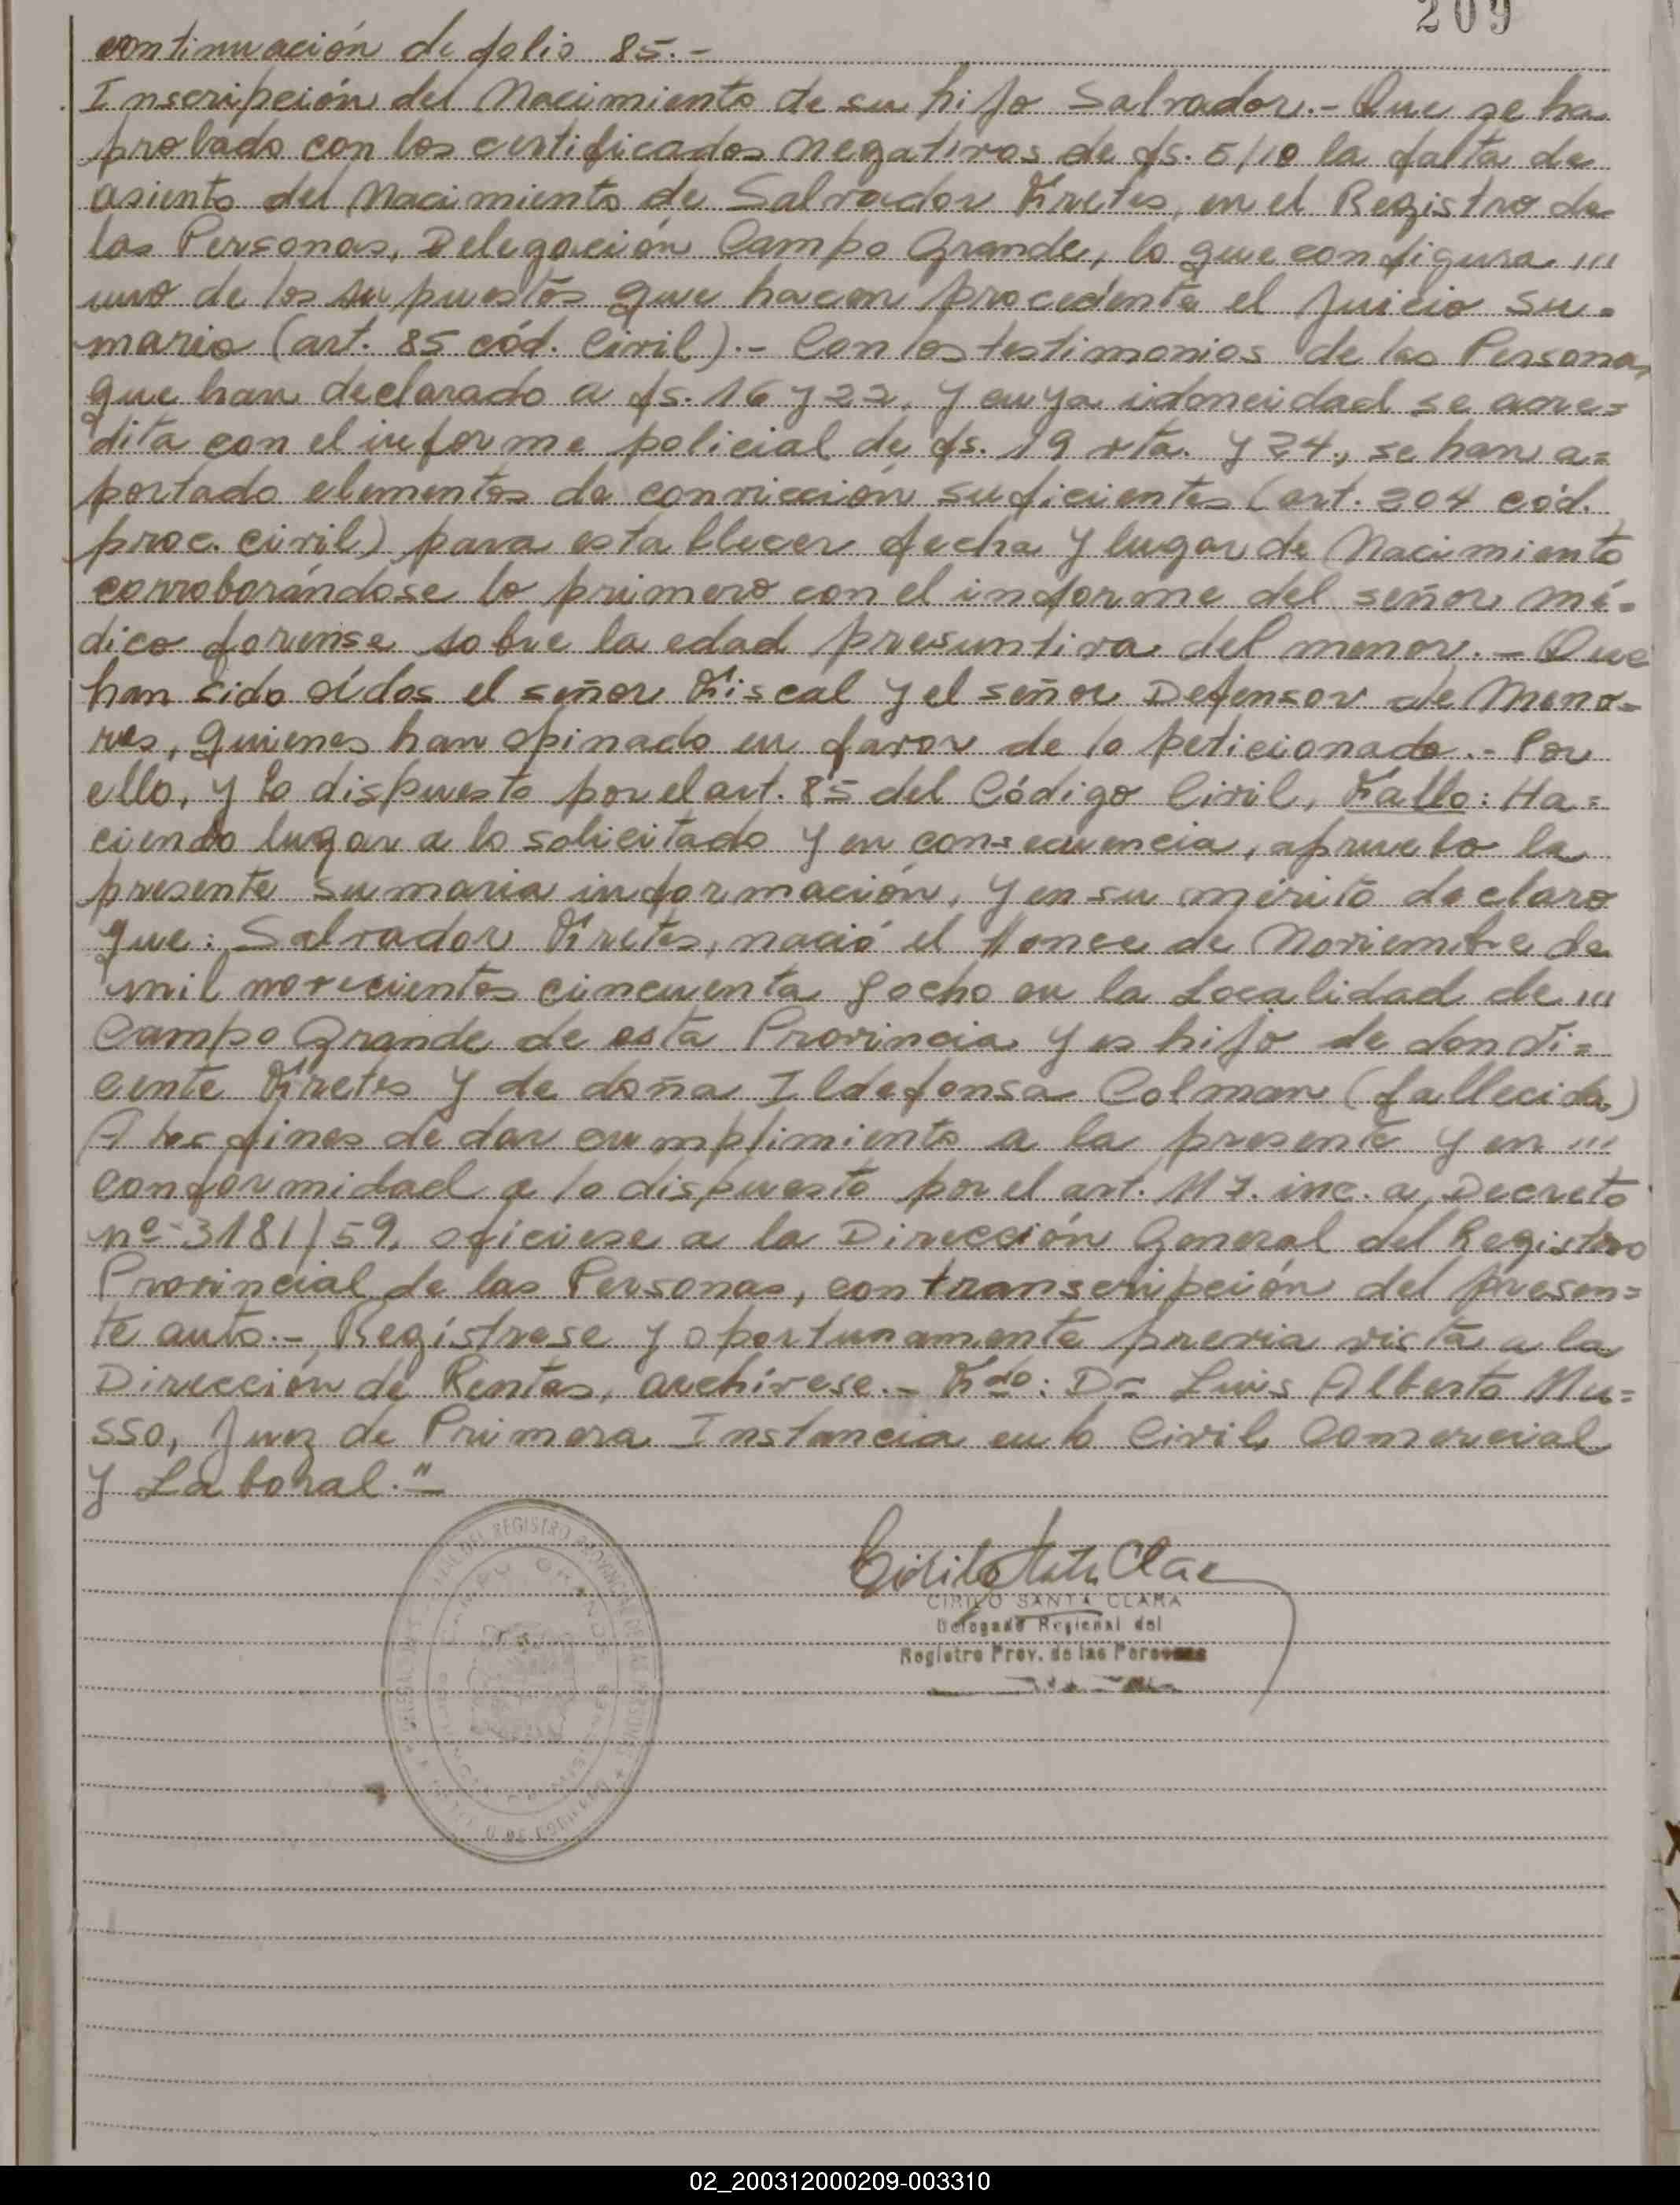 209
continuación de folio 85.-
Inscripción del Nacimiento de su hijo Salvador.- Que se ha
probado con los certificados negativos de fs. 5/10 la falta de
asiento del Nacimiento de Salvador Fretes, en el Registro de
las Personas, Delegación Campo Grande, lo que configura ///
uno de los supuestos que hacen procedente el juicio su-
mario (art. 85 cód. Civil).- Con los testimonios de las Personas
que han declarado a fs. 16 y 22, y cuya idoneidad se acre=
dita con el informe policial de fs. 19 vta. y 24, se han a=
portado elementos de convicción suficientes (art. 204 cód.
proc. civil) para establecer fecha y lugar de Nacimiento
corroborándose lo primero con el informe del señor mé-
dico forense sobre la edad presuntiva del menor.- Que
han sido oídos el señor Fiscal y el señor Defensor de Meno-
res, quienes han opinado en favor de lo peticionado.- Por
ello, y lo dispuesto por el art. 85 del Código Civil, Fallo: Ha=
ciendo lugar a lo solicitado y en consecuencia, apruebo la
presente sumaria información, y en su mérito declaro
que: Salvador Fretes, nació el once de Noviembre de
mil novecientos cincuenta y ocho en la Localidad de ///
Campo Grande de esta Provincia y es hijo de don Vi=
cente Fretes y de doña Ildefonsa Colman (fallecida)
A los fines de dar cumplimiento a la presente y en ///
conformidad a lo dispuesto por el art. 117. inc. a, Decreto
nº 3181/59, ofíciese a la Dirección General del Registro
Provincial de las Personas, con transcripción del presen=
te auto.- Regístrese y oportunamente previa vista a la
Dirección de Rentas, archívese.- Fdo: Dr Luis Alberto Mu=
sso, Juez de Primera Instancia en lo Civil, Comercial
y Laboral."-
CIRILO SANTA CLARA
Delegado Regional del
Registro Prov. de las Personas
CAMPO GRANDE
02_200312000209-003310